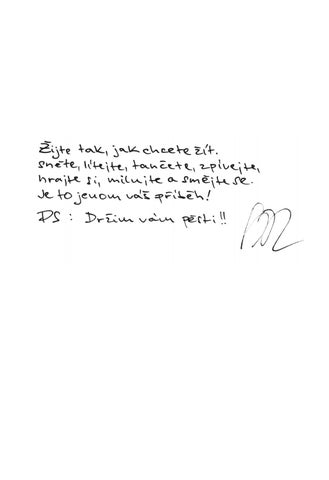 Žijte tak, jak chcete žít.
sněte, lítejte, tančete, zpívejte,
hrajte si, milujte a smějte se.
Je to jenom váš příběh!
PS: Držím vám pěsti!!